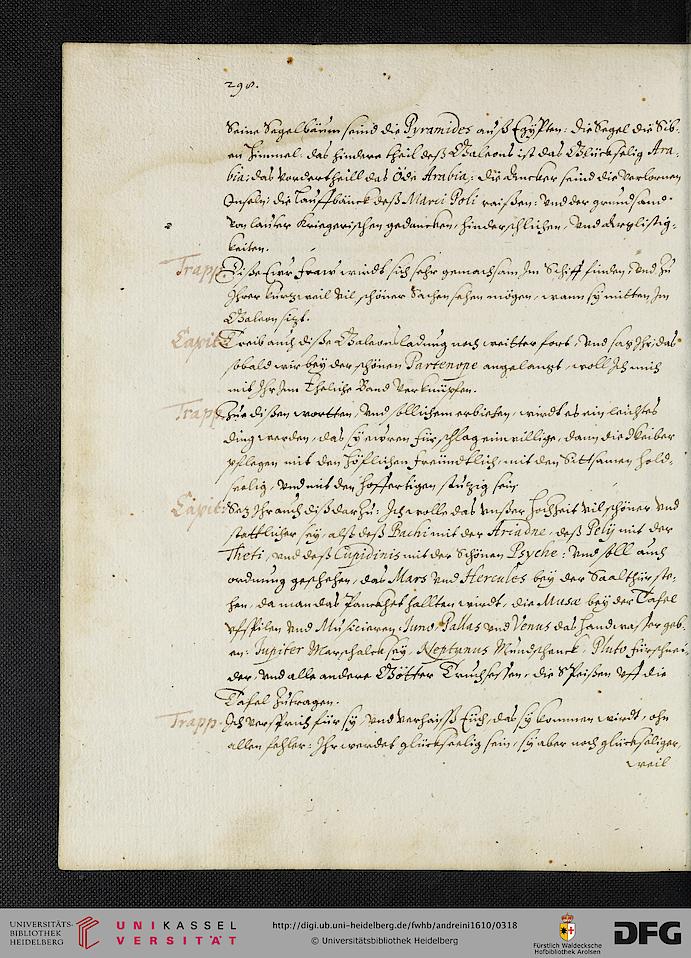 298.
Seine Segelbäum seind die Pyramides auß Egÿpten: die Segel die Sib-
en Himmel: das hindere theil deß Galeons ist das Glückselig Ara-
bia: das Vordertheill das Öde Arabia: die Ancker seind die verlornen
Inseln: die Lauffbänck deß Marci Poli raißen: Und der grundsand
von lauter Kriegerischen gedancken, hinderschlichen, Und arglistig-
keiten.
Trapp: Diße Ewr fraw wirdt sich sehr gemachsam Im Schiff finden, Und zu
Ihrer kurtzweil Vil schöner Sachen sehen mögen, wann sÿ mitten Im
Galeon sitzt.
Capit: Treib auch diße Galeonsladung noch weitter fort, Und sag Ihr, das
sobald wir beÿ der schönen Partenope angelangt, woll Ich mich
mit Ihr Inn Eheliche Band Verknüpfen.
Trapp: Zue dißen wortten, Und sollichem erbieten, wirdt es ein leichtes
ding werden, das sÿ ewren fürschlag einwillige, dann die Weiber
pflegen mit den höflichen freündtlich, mit den Sittsamen hold-
seelig, Und mit den hoffertigen stutzig sein.
Capit: Sag Ihr auch diß darzu: Ich wolle das Unßer Hochzeit Vil schöner Und
stattlicher seÿ, alß deß Bachi mit der Ariadne, deß Pelÿ mit der
Theti, Und deß Cupidinis mit der Schönen Psyche: Und soll auch
ordnung geschehen, das Mars Und Hercules beÿ der Saalthür ste-
hen, da man das Panckhet hallten wirdt, die Musæ beÿ der Tafel
ufspilen Und Musicieren: Iuno, Pallas und Venus das Handwasser geb-
en: Iupiter Marschalck seÿ, Neptunus Mundschenck, Pluto fürschnei-
der, Und alle andere Götter Truchsessen, die Speißen uff die
Tafel zutragen.
Trapp: Ich Versprich für sÿ, Und Verhaiss Euch, das sÿ kommen wirdt, ohn
allen fehler: Ihr werdet glückseelig sein, sÿ aber noch glückseliger,
weil
UNIVERSITÄTS-
BIBLIOTHEK
HEIDELBERG
UNIKASSEL
VERSITÄT
http://digi.ub.uni-heidelberg.de/fwhb/andreini1610/0318
© Universitätsbibliothek Heidelberg
Fürstlich Waldecksche
Hofbibliothek Arolsen
DFG